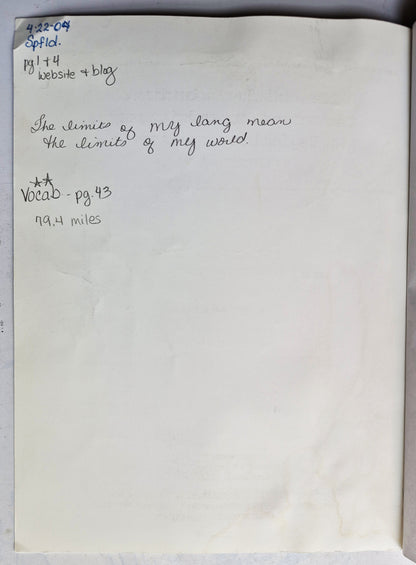 4-22-04
Spfld.
pg 1 + 4
website + blog
The limits of my lang mean
the limits of my world.
Vocab - pg. 43
79.4 miles